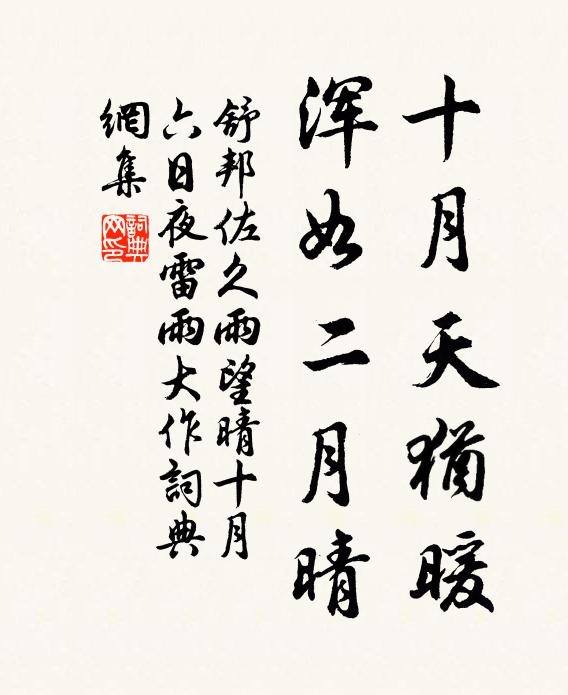 十月天猶暖
渾如二月晴
舒邦佐久雨望晴十月
六日夜雷雨大作詞典
網集
詞典網印